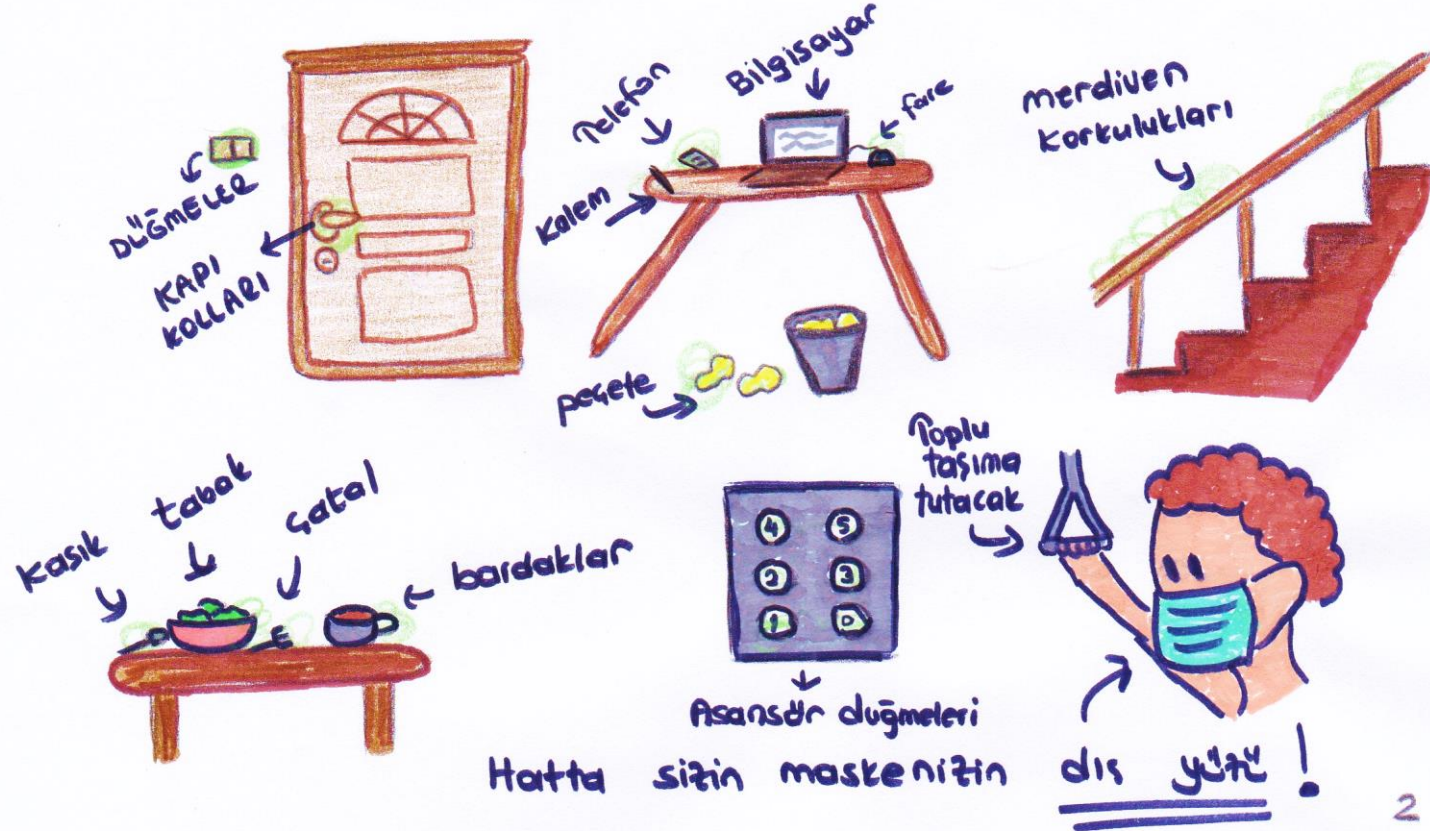 DÜĞMELER
KAPI
KOLLARI
Telefon
Bilgisayar
fare
Kalem
peçete
merdiven
Korkulukları
Kaşık
tabak
çatal
bardaklar
4 5
2 3
1 0
Asansör duğmeleri
Toplu
taşıma
tutacak
Hatta sizin maskenizin dış yüzü!
2